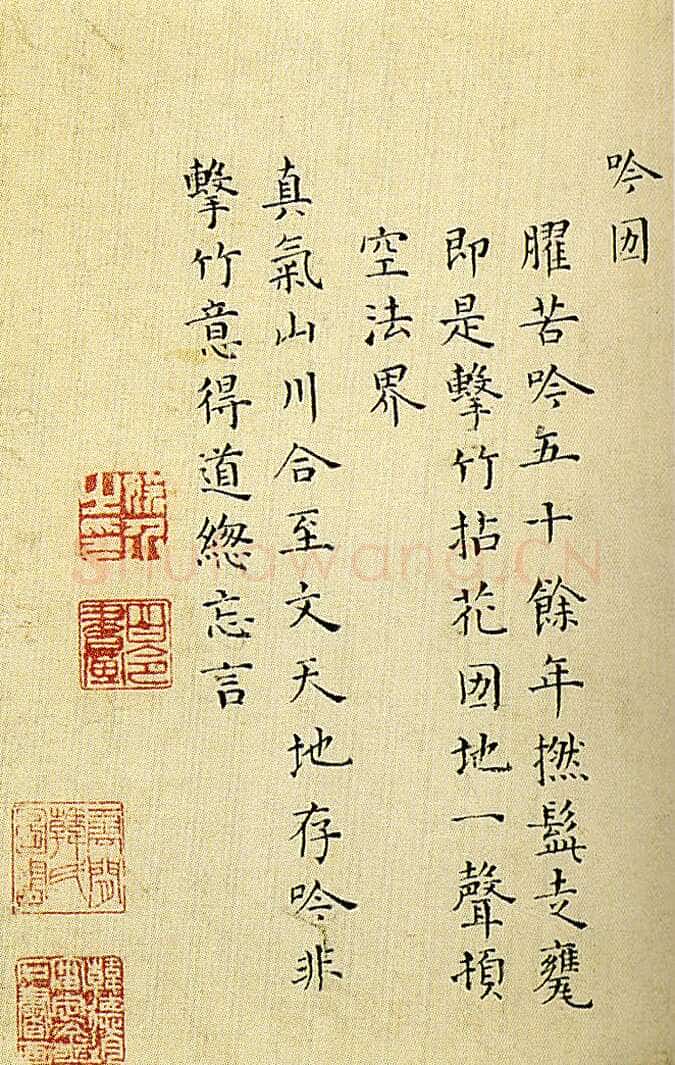 吟㘞
臞苦吟五十餘年撚髭走甕
即是擊竹拈花㘞地一聲頓
空法界
真氣山川合至文天地存吟非
擊竹意得道緫忘言
shufawang.CN